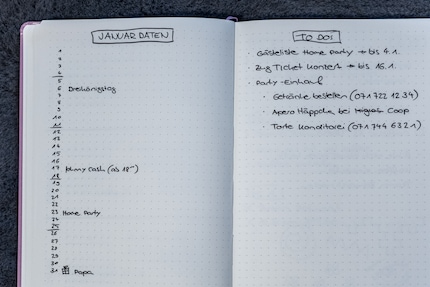 JANUAR DATEN
1
2
3
4
5
6 Dreikönigstag
7
8
9
10
11
12
13
14
15
16
17 Johnny Cash (ab 18⁰⁰)
18
19
20
21
22
23 Home Party
24
25
26
27
28
29
30
31 Papa
TO DOS
· Gästeliste Home Party → bis 4.1.
· Zug Ticket Konzert → bis 16.1.
· Party-Einkauf
· Getränke bestellen (071 722 12 34)
· Apero Häppchen bei Migros Coop
· Torte Konditorei (071 744 63 21)